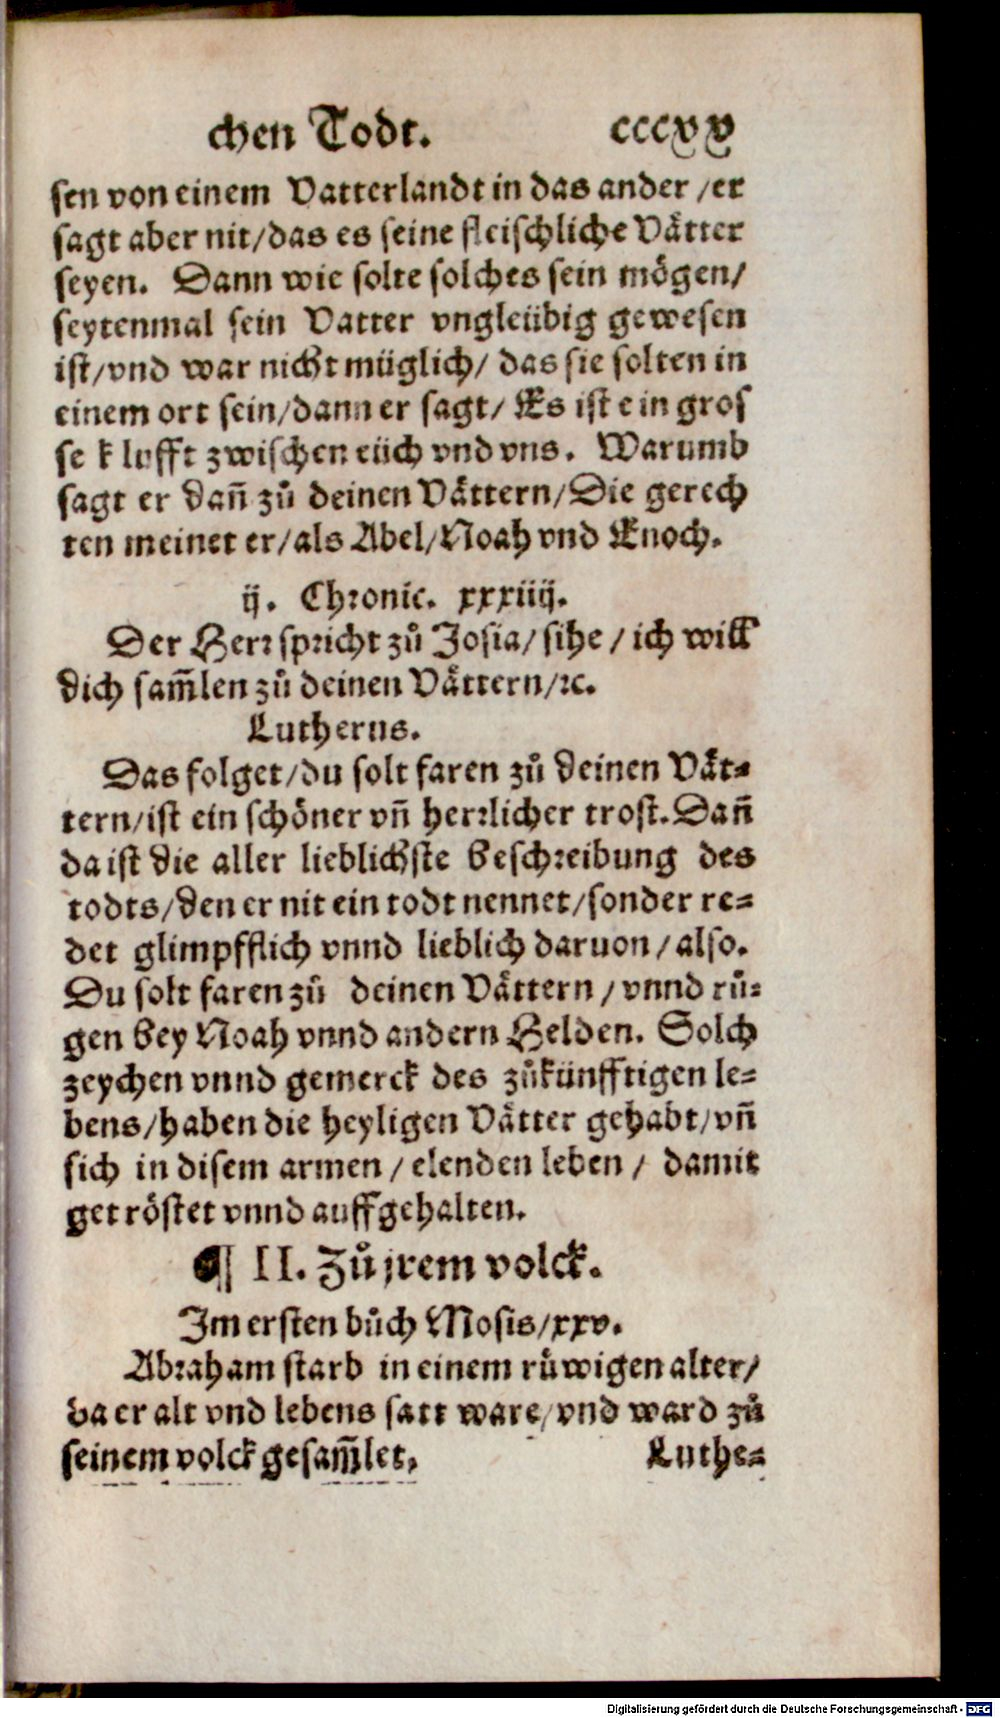 chen Todt. cccxx
sen von einem Vatterlandt in das ander / er
sagt aber nit / das es seine fleischliche Vaͤtter
seyen. Dann wie solte solches sein moͤgen /
seytenmal sein Vatter vngleübig gewesen
ist / vnd war nicht müglich / das sie solten in
einem ort sein / dann er sagt / Es ist ein gros
se klufft zwischen eüch vnd vns. Warumb
sagt er dañ zů deinen Vaͤttern / Die gerech
ten meinet er / als Abel / Noah vnd Enoch.
ij. Chronic. xxxiiij.
Der Herr spricht zů Josia / sihe / ich will
dich sam̃len zů deinen Vaͤttern / ꝛc.
Lutherus.
Das folget / du solt faren zů deinen Vaͤt=
tern / ist ein schoͤner vñ herrlicher trost. Dañ
da ist die aller lieblichste beschreibung des
todts / den er nit ein todt nennet / sonder re=
det glimpfflich vnnd lieblich daruon / also.
Du solt faren zů deinen Vaͤttern / vnnd rů=
gen bey Noah vnnd andern Helden. Solch
zeychen vnnd gemerck des zůkünfftigen le=
bens / haben die heyligen Vaͤtter gehabt / vñ
sich in disem armen / elenden leben / damit
getroͤstet vnnd auffgehalten.
¶ II. Zů jrem volck.
Im ersten bůch Mosis / xxv.
Abraham starb in einem růwigen alter /
da er alt vnd lebens satt ware / vnd ward zů
seinem volck gesam̃let. Luthe=
Digitalisierung gefördert durch die Deutsche Forschungsgemeinschaft - DFG